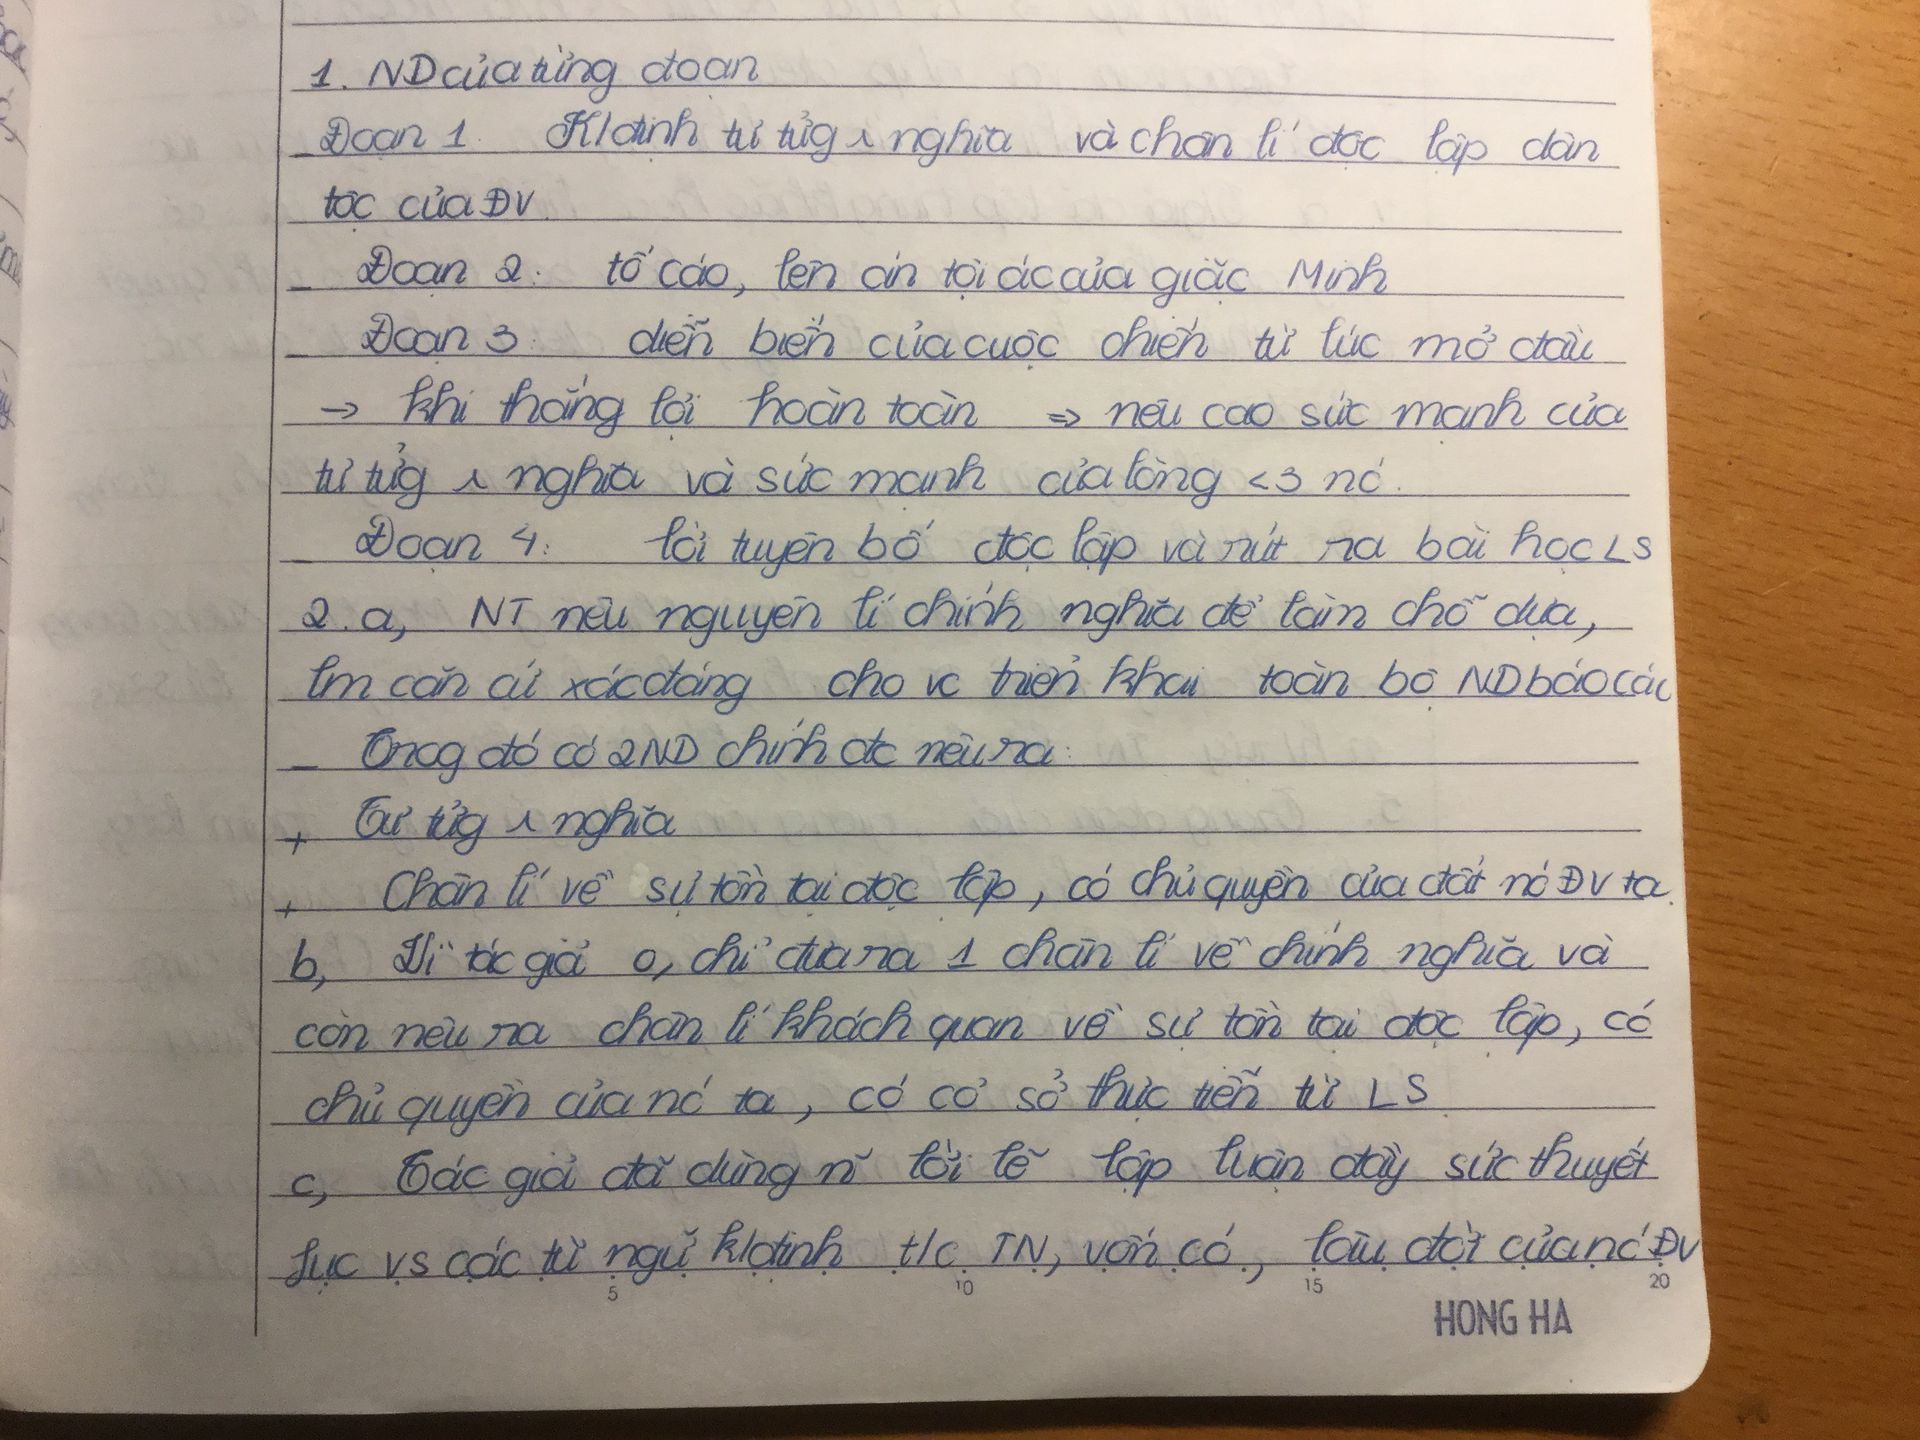 1. ND của từng đoạn
- Đoạn 1. K/định tư tưg 1 nghĩa và chân lí độc lập dân
tộc của ĐV.
- Đoạn 2: tố cáo, lên án tội ác của giặc Minh
- Đoạn 3: diễn biến của cuộc chiến từ lúc mở đầu
→ khi thắng lợi hoàn toàn ⇒ nêu cao sức mạnh của
tư tưg 1 nghĩa và sức mạnh của lòng <3 nớ.
- Đoạn 4: lời tuyên bố độc lập và rút ra bài học LS
2. a, NT nêu nguyên lí chính nghĩa để làm chỗ dựa,
lm căn cứ xác đáng cho vc triển khai toàn bộ ND báo cáo
- Trog đó có 2 ND chính đc nêu ra:
+ Tư tưg 1 nghĩa
+ Chân lí về sự tồn tại độc lập, có chủ quyền của đất nớ ĐV ta.
b, Vì tác giả 0, chỉ đưa ra 1 chân lí về chính nghĩa và
còn nêu ra chân lí khách quan về sự tồn tại độc lập, có
chủ quyền của nớ ta, có cơ sở thực tiễn từ LS
c, Tác giả đã dùng n~ lời lẽ lập luận đầy sức thuyết
fục vs các từ ngữ k/định t/c TN, vốn có, lâu đời của nớ ĐV
5 10 15 20
HONG HA